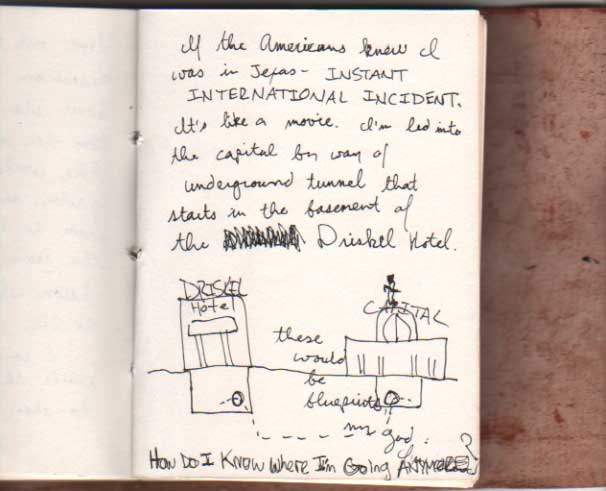 If the Americans knew I
was in Texas - INSTANT
INTERNATIONAL INCIDENT.
It's like a movie. I'm led into
the capital by way of
underground tunnel that
starts in the basement of
the Driskel Hotel.
DRISKEL
Hotel
CAPITAL
these
would
be
blueprints
my god.
HOW DO I KNOW WHERE I'M GOING ANYMORE?